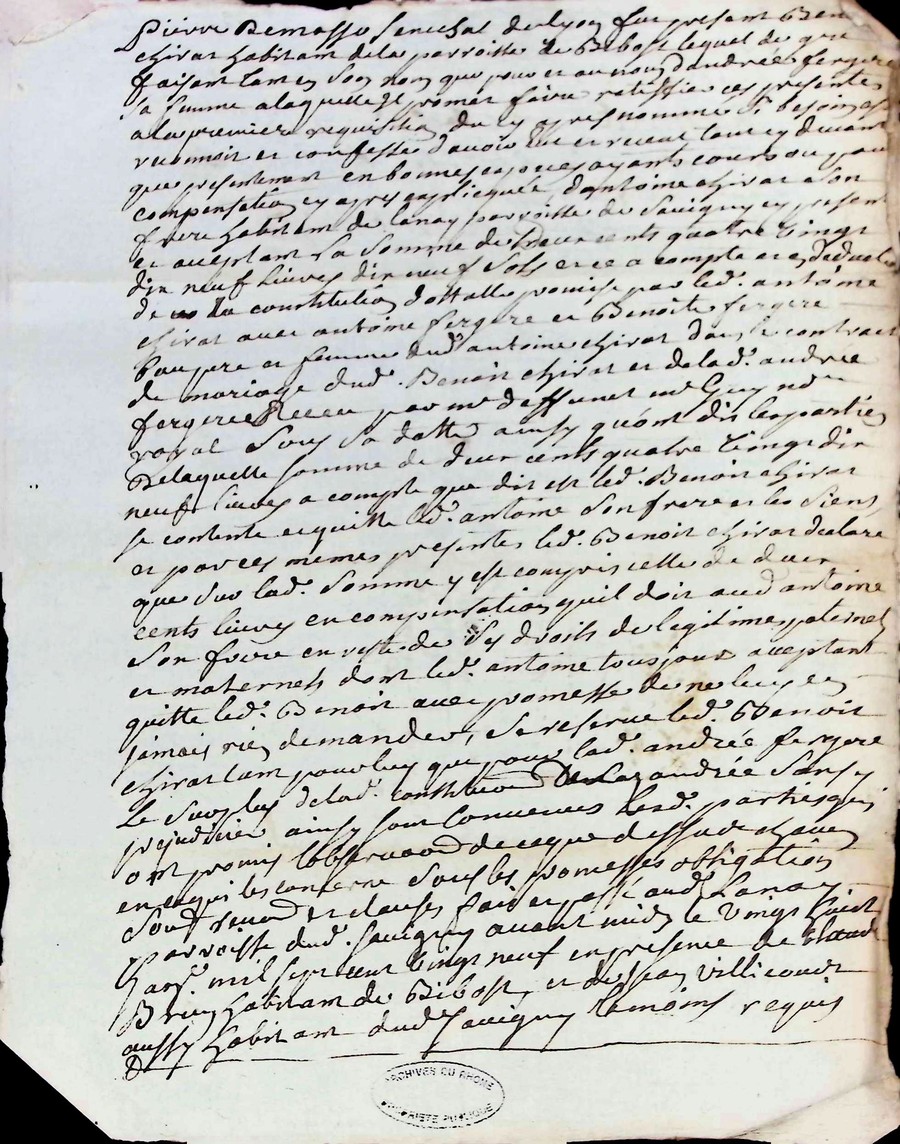 Pierre Demasso senechal de Lyon fut present Ben
chirat habitant de la parroisse de Bibost lequel de gré
faisant tant en son nom que pour et au nom d'andrée fergere
sa femme a laquelle il promet faire ratiffier ces presentes
a la premiere requisition du cy apres nommé si besoin est
reconnoit et confesse d'avoir eu et receut tant cy devant
que presentement en bonnes especes ayants cours ou par
compensation cy apres expliequée d'antoine chirat son
frere habitant de Lanay parroisse de Savigny cy present
et aceptant la somme de deux cents quatre vingt
dix neuf livres dix neuf sols et ce a compte et en deduction
de la constitution dottalle promise par led. antoine
chirat avec antoine fergere et Benoite fergere
beaupere et femme dud. antoine chirat dans le contract
de mariage dud. Benoit chirat et de lad. andrée
fergere Receu par me deffunct me Guy nre
royal sous sa datte ainsy qu'ont dit les parties
De laquelle somme de deux cents quatre vingt dix
neuf livres a compte que dit est led. Benoit chirat
se contente et quitte led. antoine son frere et les siens
et par ces memes presentes led. Benoit chirat declare
que sur lad. somme y est compris celle de deux
cents livres en compensation qu'il doit aud antoine
son frere en reste de ses droits de legitimes paternels
et maternels dont led. antoine tousjour aceptant
quitte led. Benoit avec promesse de ne luy en
jamais rien demander, se reserve led. Benoit
chirat tant pour luy que pour lad. andrée fergere
Le surplus de lad. constitution de lad andrée sans y
prejudicier ainsy sont convenues lesd. parties qui
ont promis l'observaon de ce que dessus chacun
en ce qui les concerne sous les promesses obligation
soub renond et clauses fait et passé aud Lanay
Parroisse dud. Savigny avant midy le vingt huict
Janr. mil sept cent vingt neuf en presence de
Brun habitant de Bibost, et de Jean Villecourt
aussy habitant dud Savigny temoins requis
ARCHIVES DU RHONE
PROPRIETE PUBLIQUE